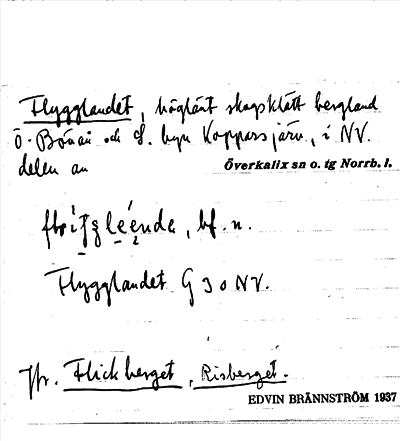 Flygglandet, höglänt skogsklätt bergland
Ö. Bönäi och S. byn Kopparsjärv, i NV.
delen av
Överkalix sn o. tg Norrb. l.
bf. n.
Flygglandet G 3 o NV.
Jfr. Flickberget, Risberget.
EDVIN BRÄNNSTRÖM 1937